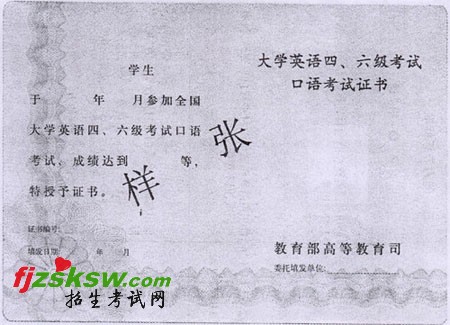 学生
于 年 月参加全国
大学英语四、六级考试口语
考试、成绩达到 等,
特授予证书。
证书编号:
填发日期: 年 月
大学英语四、六级考试
口语考试证书
样张
教育部高等教育司
委托填发单位:
fjzsksw.com
招生考试网